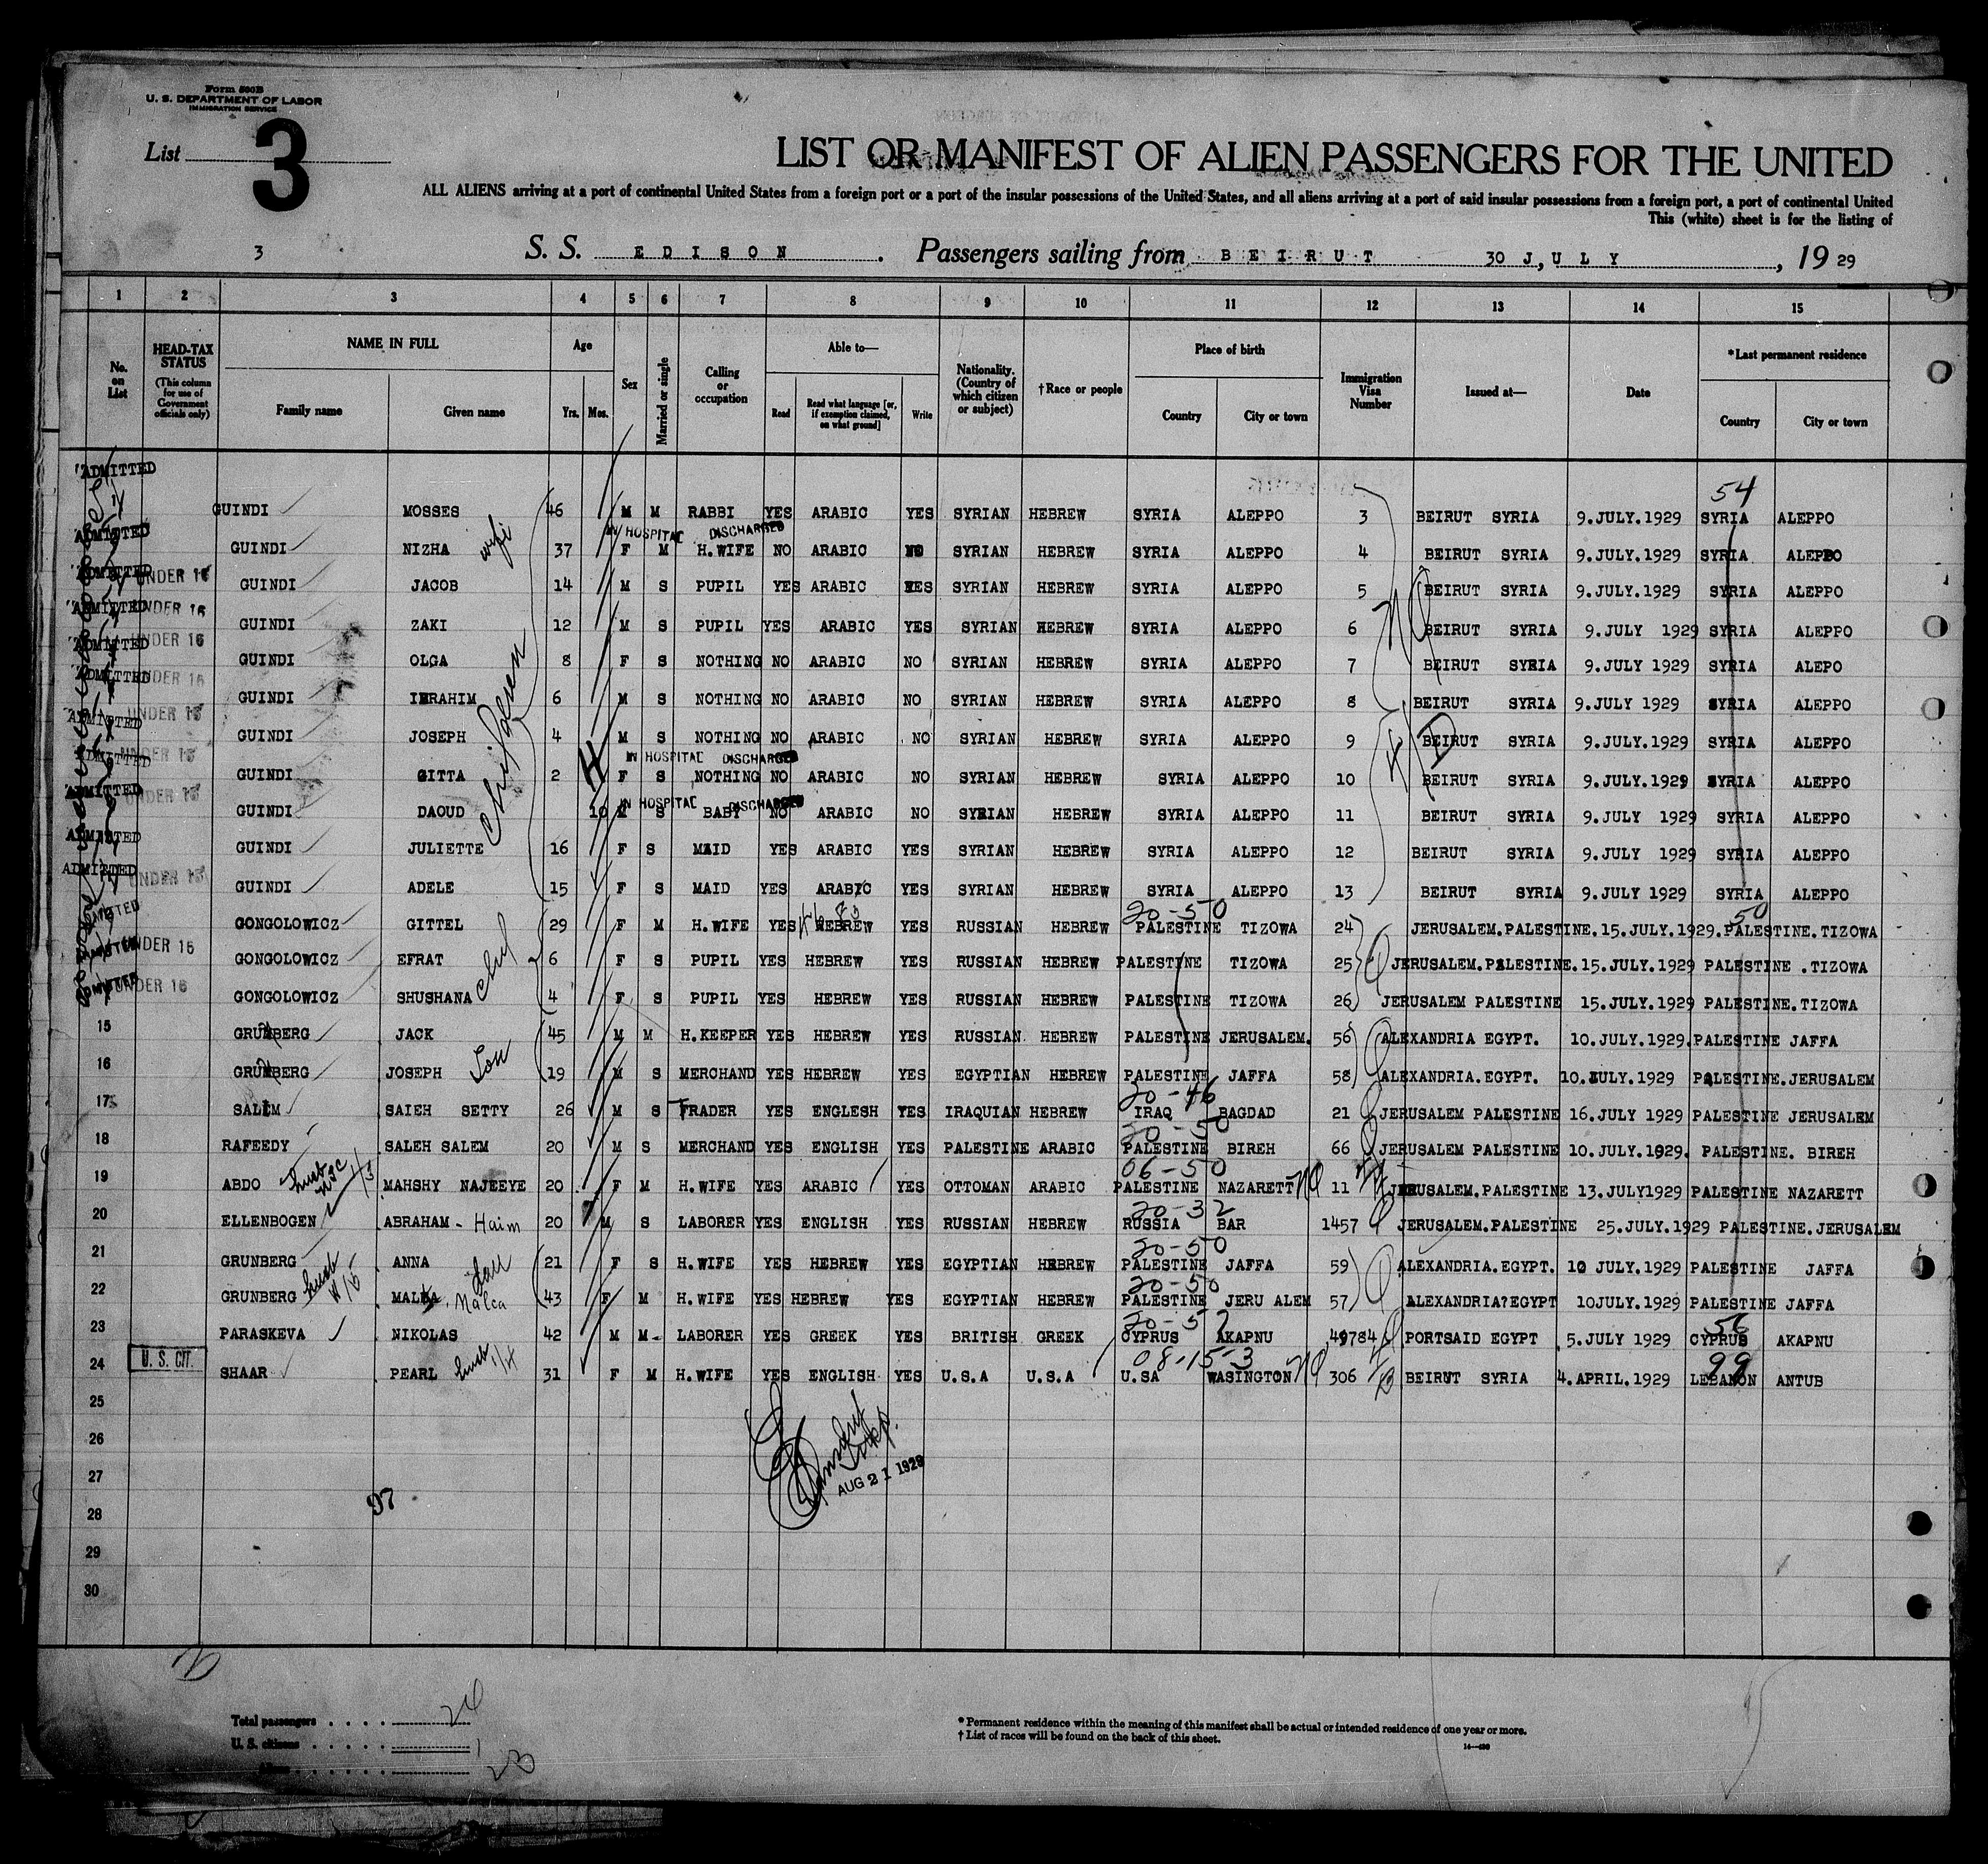 Form 500B
U. S. DEPARTMENT OF LABOR
IMMIGRATION SERVICE
List 3
LIST OR MANIFEST OF ALIEN PASSENGERS FOR THE UNITED
ALL ALIENS arriving at a port of continental United States from a foreign port or a port of the insular possessions of the United States, and all aliens arriving at a port of said insular possessions from a foreign port, a port of continental United
This (white) sheet is for the listing of
3 S. S. EDISON . Passengers sailing from BEIRUT 30 J,ULY , 19 29
1 2 3 4 5 6 7 8 9 10 11 12 13 14 15
No. on List HEAD-TAX STATUS (This column for use of Government officials only) NAME IN FULL Family name Given name Age Yrs. Mos. Sex Married or single Calling or occupation Able to— Read Read what language [or, if exemption claimed, on what ground] Write Nationality. (Country of which citizen or subject) †Race or people Place of birth Country City or town Immigration Visa Number Issued at— Date *Last permanent residence Country City or town
ADMITTED
54
GUINDI MOSSES 46 M M RABBI YES ARABIC YES SYRIAN HEBREW SYRIA ALEPPO 3 BEIRUT SYRIA 9.JULY.1929 SYRIA ALEPPO
ADMITTED IN HOSPITAL DISCHARGED
GUINDI NIZHA wife 37 F M H.WIFE NO ARABIC NO SYRIAN HEBREW SYRIA ALEPPO 4 BEIRUT SYRIA 9.JULY.1929 SYRIA ALEPPO
ADMITTED UNDER 16
GUINDI JACOB 14 M S PUPIL YES ARABIC YES SYRIAN HEBREW SYRIA ALEPPO 5 BEIRUT SYRIA 9.JULY.1929 SYRIA ALEPPO
ADMITTED UNDER 16
GUINDI ZAKI 12 M S PUPIL YES ARABIC YES SYRIAN HEBREW SYRIA ALEPPO 6 BEIRUT SYRIA 9.JULY 1929 SYRIA ALEPPO
ADMITTED UNDER 16
GUINDI OLGA children 8 F S NOTHING NO ARABIC NO SYRIAN HEBREW SYRIA ALEPPO 7 BEIRUT SYRIA 9.JULY 1929 SYRIA ALEPO
ADMITTED UNDER 16
GUINDI IBRAHIM 6 M S NOTHING NO ARABIC NO SYRIAN HEBREW SYRIA ALEPPO 8 BEIRUT SYRIA 9.JULY 1929 SYRIA ALEPPO
ADMITTED UNDER 16
GUINDI JOSEPH 4 M S NOTHING NO ARABIC NO SYRIAN HEBREW SYRIA ALEPPO 9 BEIRUT SYRIA 9.JULY.1929 SYRIA ALEPPO
ADMITTED UNDER 16 IN HOSPITAL DISCHARGED
GUINDI GITTA 2 H F S NOTHING NO ARABIC NO SYRIAN HEBREW SYRIA ALEPPO 10 BEIRUT SYRIA 9.JULY.1929 SYRIA ALEPPO
ADMITTED UNDER 16 IN HOSPITAL DISCHARGED
GUINDI DAOUD 10 M S BABY NO ARABIC NO SYRIAN HEBREW SYRIA ALEPPO 11 BEIRUT SYRIA 9.JULY 1929 SYRIA ALEPPO
ADMITTED
GUINDI JULIETTE 16 F S MAID YES ARABIC YES SYRIAN HEBREW SYRIA ALEPPO 12 BEIRUT SYRIA 9.JULY 1929 SYRIA ALEPPO
ADMITTED UNDER 16
GUINDI ADELE 15 F S MAID YES ARABIC YES SYRIAN HEBREW SYRIA ALEPPO 13 BEIRUT SYRIA 9.JULY 1929 SYRIA ALEPPO
ADMITTED 20-50 50
GONGOLOWICZ GITTEL 29 F M H.WIFE YES HEBREW YES RUSSIAN HEBREW PALESTINE TIZOWA 24 JERUSALEM.PALESTINE.15.JULY.1929.PALESTINE.TIZOWA
ADMITTED UNDER 16
GONGOLOWICZ EFRAT 6 F S PUPIL YES HEBREW YES RUSSIAN HEBREW PALESTINE TIZOWA 25 JERUSALEM.PALESTINE.15.JULY.1929 PALESTINE .TIZOWA
ADMITTED UNDER 16
GONGOLOWICZ SHUSHANA 4 F S PUPIL YES HEBREW YES RUSSIAN HEBREW PALESTINE TIZOWA 26 JERUSALEM PALESTINE 15.JULY.1929 PALESTINE.TIZOWA
15 GRUNBERG JACK 45 M M H.KEEPER YES HEBREW YES RUSSIAN. HEBREW PALESTINE JERUSALEM. 56 ALEXANDRIA EGYPT. 10.JULY.1929.PALESTINE JAFFA
16 GRUNBERG JOSEPH Son 19 M S MERCHAND YES HEBREW YES EGYPTIAN HEBREW PALESTINE JAFFA 58 ALEXANDRIA.EGYPT. 10.JULY.1929 PALESTINE.JERUSALEM
20-46
17 SALEM SAIEH SETTY 26 M S TRADER YES ENGLESH YES IRAQUIAN HEBREW IRAQ BAGDAD 21 JERUSALEM PALESTINE 16.JULY 1929 PALESTINE JERUSALEM
20-50
18 RAFEEDY SALEH SALEM 20 M S MERCHAND YES ENGLISH YES PALESTINE ARABIC PALESTINE BIREH 66 JERUSALEM PALESTINE 10.JULY.1929. PALESTINE. BIREH
06-50
19 ABDO MAHSHY NAJEEYE 20 F M H.WIFE YES ARABIC YES OTTOMAN ARABIC PALESTINE NAZARETT 11 JERUSALEM.PALESTINE 13.JULY1929 PALESTINE NAZARETT
20-32
20 ELLENBOGEN ABRAHAM - Haim 20 M S LABORER YES ENGLISH YES RUSSIAN HEBREW RUSSIA BAR 1457 JERUSALEM.PALESTINE 25.JULY.1929 PALESTINE.JERUSALEM
20-50
21 GRUNBERG ANNA 21 F S H.WIFE YES HEBREW YES EGYPTIAN HEBREW PALESTINE JAFFA 59 ALEXANDRIA.EGYPT. 10 JULY.1929 PALESTINE JAFFA
20-50
22 GRUNBERG husb MALKA. Malca 43 F M H.WIFE YES HEBREW YES EGYPTIAN HEBREW PALESTINE JERU ALEM 57 ALEXANDRIA?EGYPT 10JULY.1929 PALESTINE JAFFA
23 PARASKEVA NIKOLAS 42 M M- LABORER YES GREEK YES BRITISH GREEK CYPRUS AKAPNU 49784 PORTSAID EGYPT 5.JULY 1929 CYPRUS AKAPNU
08-15-3 99
24 U. S. CIT. SHAAR PEARL husb 31 F M H.WIFE YES ENGLISH YES U.S.A U.S.A U.SA WASINGTON 306 BEIRUT SYRIA 4.APRIL.1929 LEBANON ANTUB
25
26
27 AUG 21 1929
28
29
30
Total passengers . . . . 24
U. S. citizens . . . . . 1
Aliens . . . . . . 23
*Permanent residence within the meaning of this manifest shall be actual or intended residence of one year or more.
†List of races will be found on the back of this sheet.